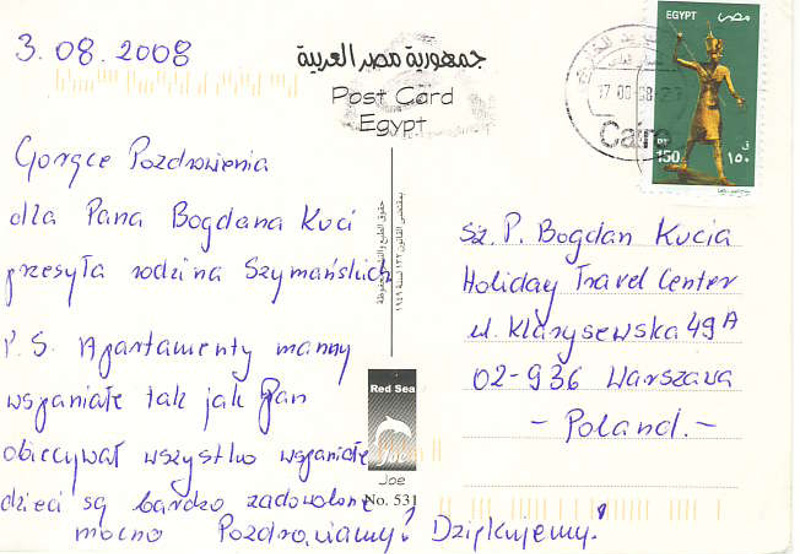 3.08.2008
جمهورية مصر العربية
Post Card
Egypt
EGYPT مصر
Cairo
150 ١٥٠
Gorące Pozdrowienia
dla Pana Bogdana Kuci
przesyła rodzina Szymańskich
P.S. Apartamenty mamy
wspaniałe tak jak Pan
obiecywał wszystko wspaniałe
dzieci są bardzo zadowolone
mocno Pozdrawiamy! Dziękujemy!
حقوق الطبع والنشر محفوظة
بمقتضى القانون ١٣٢ لسنة ١٩٤٩
Red Sea
Joe
Joe
No. 531
Sz. P. Bogdan Kucia
Holiday Travel Center
ul. Klarysewska 49A
02-936 Warszawa
- Poland. -